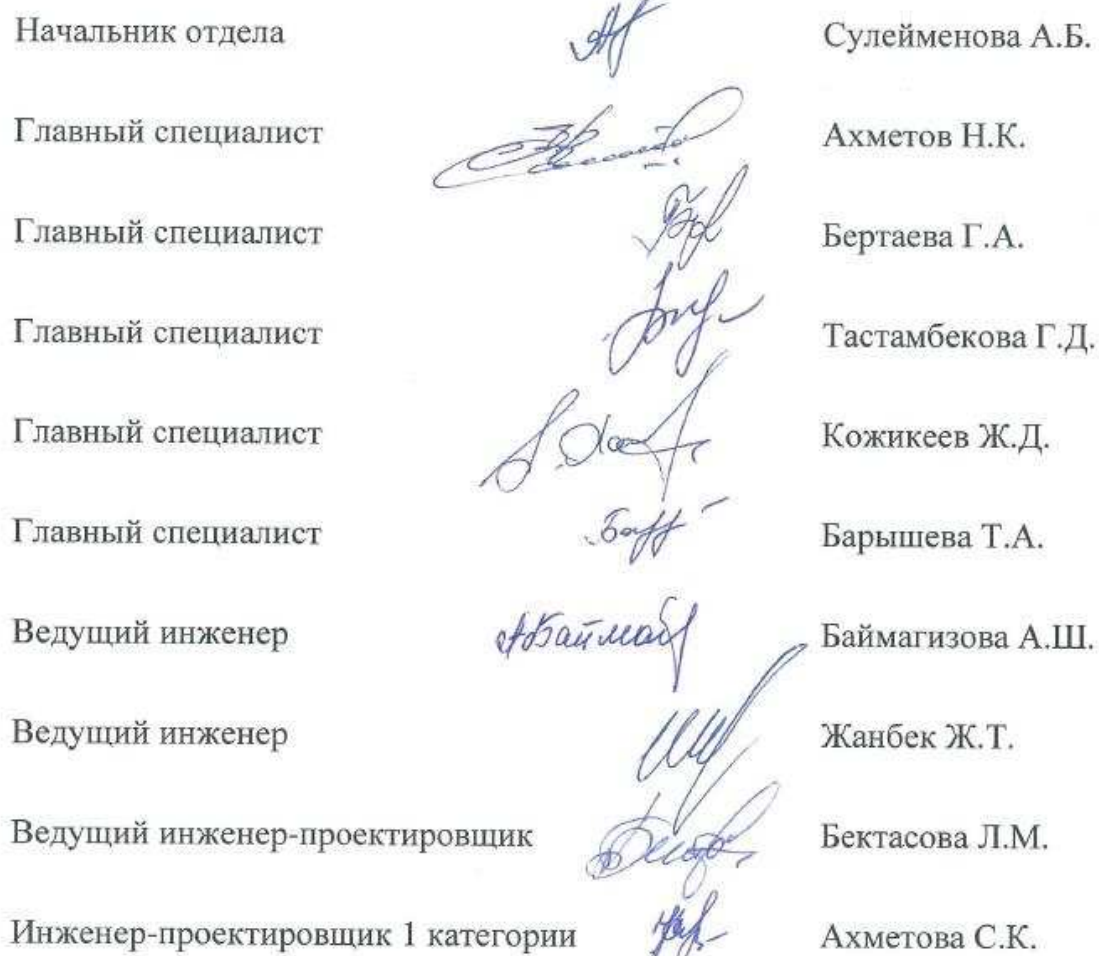 Начальник отдела Сулейменова А.Б.
Главный специалист Ахметов Н.К.
Главный специалист Бертаева Г.А.
Главный специалист Тастамбекова Г.Д.
Главный специалист Кожикеев Ж.Д.
Главный специалист Барышева Т.А.
Ведущий инженер Баймагизова А.Ш.
Ведущий инженер Жанбек Ж.Т.
Ведущий инженер-проектировщик Бектасова Л.М.
Инженер-проектировщик 1 категории Ахметова С.К.